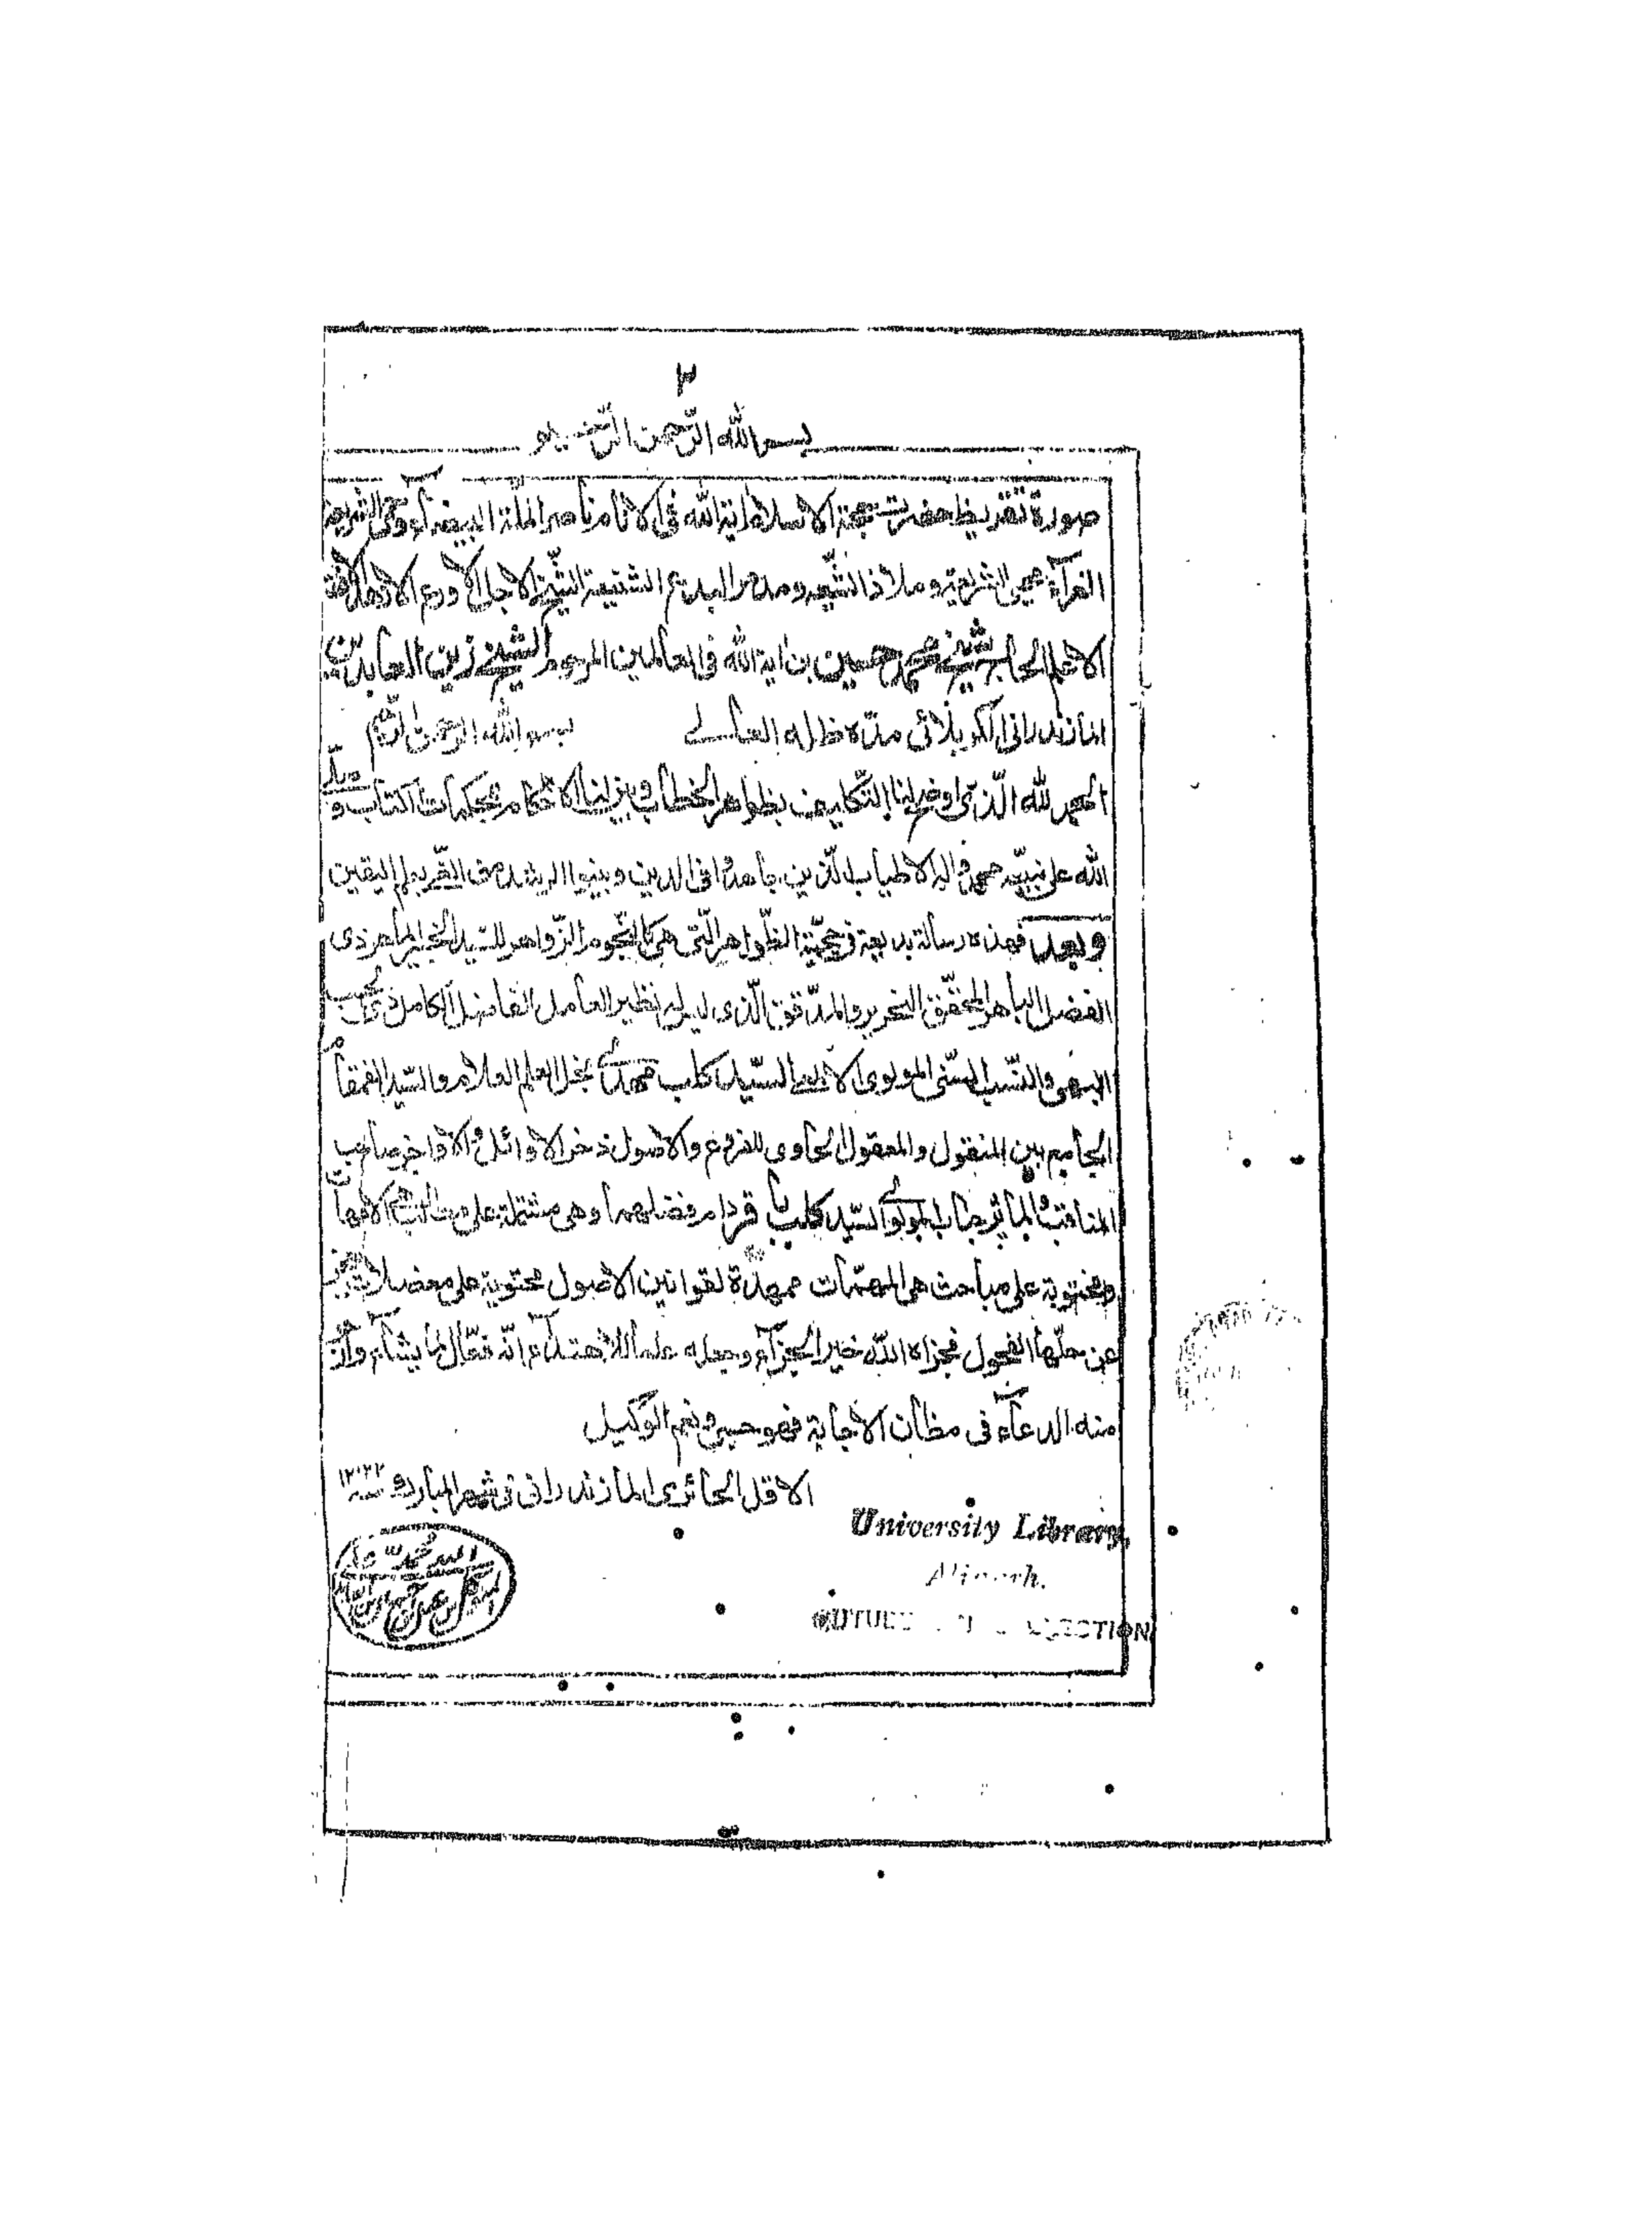 ٢
بسم الله الرّحمن الرّحيم
صورة تقريظ حضرت حجة الاسلام اية الله فى الانام ناصر الملة البيضآء وحمى الشريعة
الغرآء محيى الشريعة وملاذ الشّيعه ومدمر البدع الشنيعة الشّيخ الاجل الاورع الازهد الافقه
الاعلم الحاج شيخ محمد حسين بن اية الله فى العالمين المرحوم الشيخ زين العابدين
المازندرانى الكربلائى مدّ ظله العالے بسم الله الرحمن الرّحيم
الحمد لله الّذى اوضح لنا التّكاليف بظواهر الخطاب وبيّن لنا الاحكام بمحكمات الكتاب وصلّى
الله على نبيّه محمد واله الاطياب الّذين جاهدوا فى الدين وبيّنوا الرشد من الغّى بعلم اليقين
وبعد فهذه رسالة بديعة فى حجّيّة الظّواهر الّتى هى كالنّجوم الزّواهر للسّيد الخبير الماهر ذى
الفضل الباهر المحقّق النحرير والمدّقق الّذى ليس له نظير العامل الفاضل الكامل ذى الحسب
البهى والنّسب السّنى المولوى الالمعى السّيد كلب مهدى نجل العلم العلام والسّيد القمقام
الجامع بين المنقول والمعقول الحاوى للفروع والاصول ذخر الاوائل والاواخر صاحب
المناقب والمأثر جناب المولوى السّيد كلب باقر دام فضلهما وهى مشتملة على مطالب هى الامهات
ومحتوية على مباحث هى المهمّات ممهدّة لقوانين الاصول محتوية على معضلات عجز
عن حلّها الفحول فجزاه الله خير الجزآء وجعله علما للاهتدآء انّه فعّال لما يشآء وارجو
منه الدعآء فى مظان الاجابة فهو حسبى ونعم الوكيل
الاقل الحائرى المازندرانى فى شهر المبارك
University Library,
Aligarh.